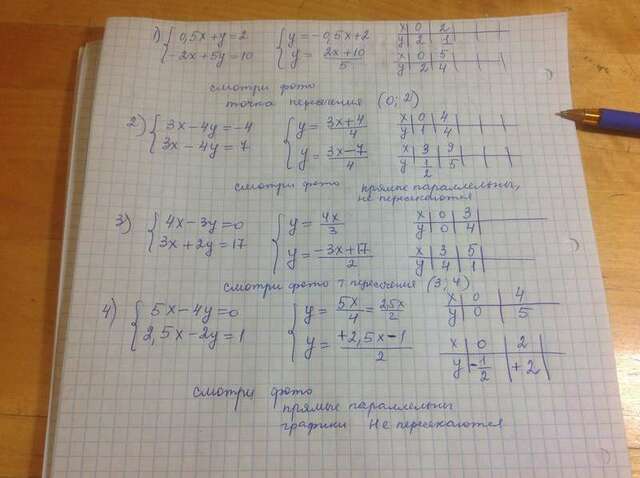 1) { 0,5x+y=2 { y=-0,5x+2 x | 0 | 2
-2x+5y=10 y= 2x+10/5 y | 2 | 1
x | 0 | 5
y | 2 | 4
смотри фото
точка пересечения (0; 2)
2) { 3x-4y=-4 { y= 3x+4/4 x | 0 | 4
3x-4y=7 y= 3x-7/4 y | 1 | 4
x | 3 | 9
y | 1/2 | 5
смотри фото прямые параллельны,
не пересекаются
3) { 4x-3y=0 { y= 4x/3 x | 0 | 3
3x+2y=17 y= -3x+17/2 y | 0 | 4
x | 3 | 5
y | 4 | 1
смотри фото т пересечения (3; 4)
4) { 5x-4y=0 { y= 5x/4 = 2,5x/2 x | 0 | 4
2,5x-2y=1 y= +2,5x-1/2 y | 0 | 5
x | 0 | 2
y | -1/2 | +2
смотри фото
прямые параллельны
графики не пересекаются